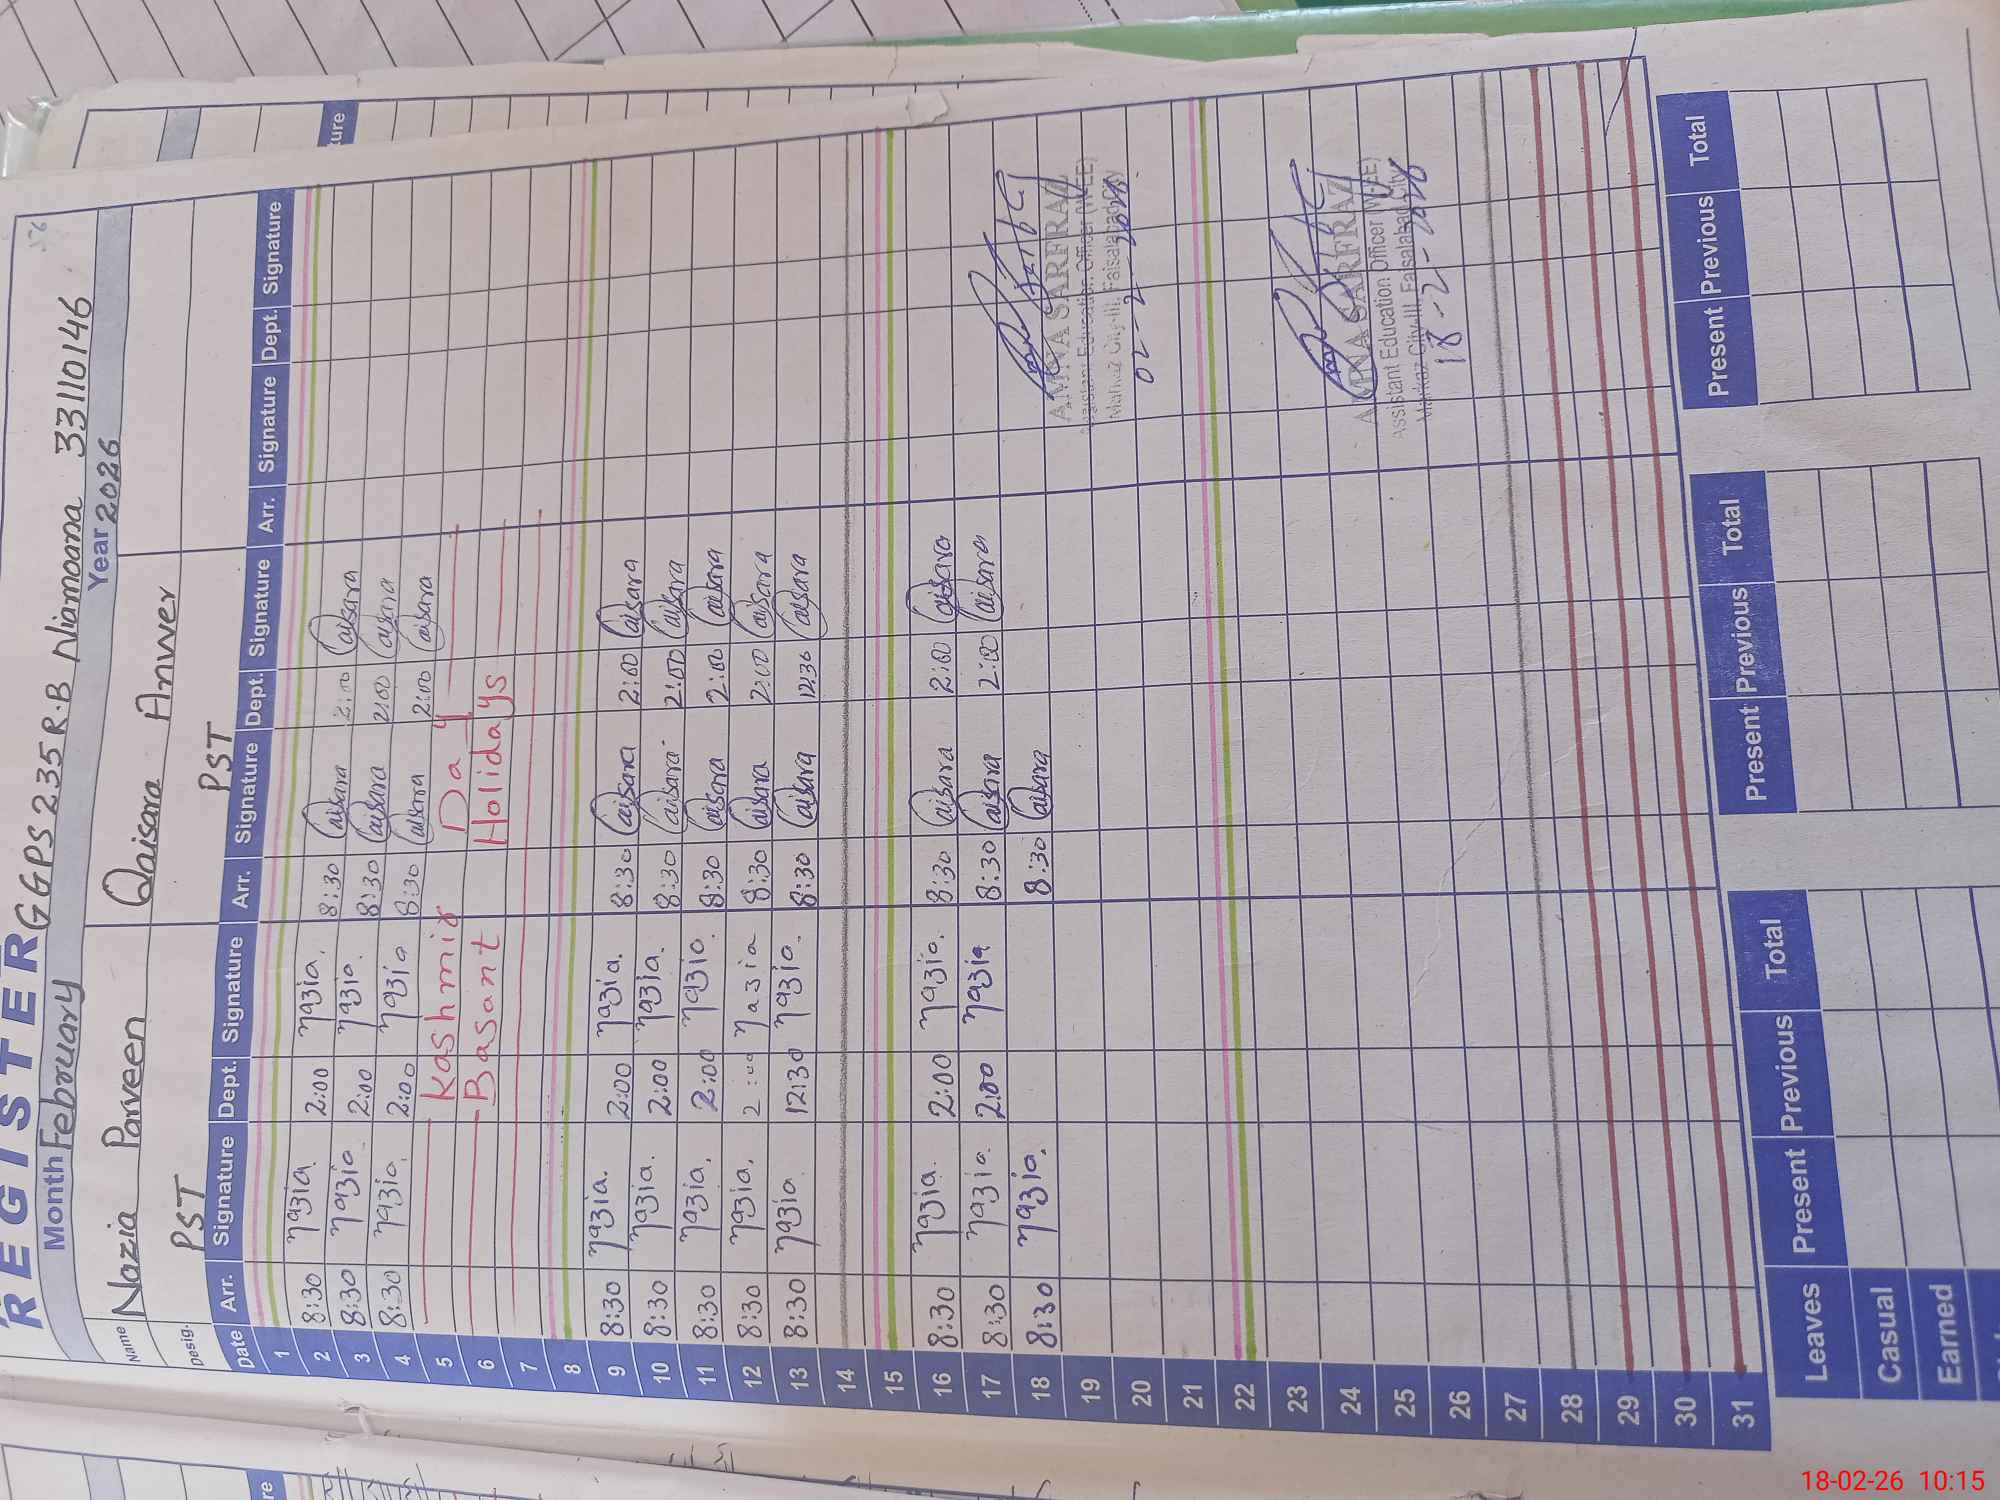 REGISTER GGPS 235 R.B Niamoana 33110146
Month February Year 2026
Name Nazia Parveen Qaisara Anwer
Desig. PST PST
Date Arr. Signature Dept. Signature Arr. Signature Dept. Signature Arr. Signature Dept. Signature
1
2 8:30 nazia. 2:00 nazia. 8:30 Qaisara 2:00 Qaisara
3 8:30 nazia. 2:00 nazia. 8:30 Qaisara 2:00 Qaisara
4 8:30 nazia. 2:00 nazia 8:30 Qaisara 2:00 Qaisara
5 Kashmir Day
6 Basant Holidays
7
8
9 8:30 nazia. 2:00 nazia. 8:30 Qaisara 2:00 Qaisara
10 8:30 nazia. 2:00 nazia. 8:30 Qaisara 2:00 Qaisara
11 8:30 nazia. 2:00 nazia. 8:30 Qaisara 2:00 Qaisara
12 8:30 nazia. 2:00 nazia 8:30 Qaisara 2:00 Qaisara
13 8:30 nazia. 12:30 nazia. 8:30 Qaisara 12:30 Qaisara
14
15
16 8:30 nazia. 2:00 nazia. 8:30 Qaisara 2:00 Qaisara
17 8:30 nazia. 2:00 nazia 8:30 Qaisara 2:00 Qaisara
18 8:30 nazia. 8:30 Qaisara
AMNA SARFRAZ
Assistant Education Officer (W-EE)
Markaz City-III, Faisalabad City
02-2-2026
19
20
21
22
23
24
AMNA SARFRAZ
Assistant Education Officer (W-EE)
Markaz City-III, Faisalabad City
18-2-2026
25
26
27
28
29
30
31
Leaves Present Previous Total Present Previous Total Present Previous Total
Casual
Earned
18-02-26 10:15